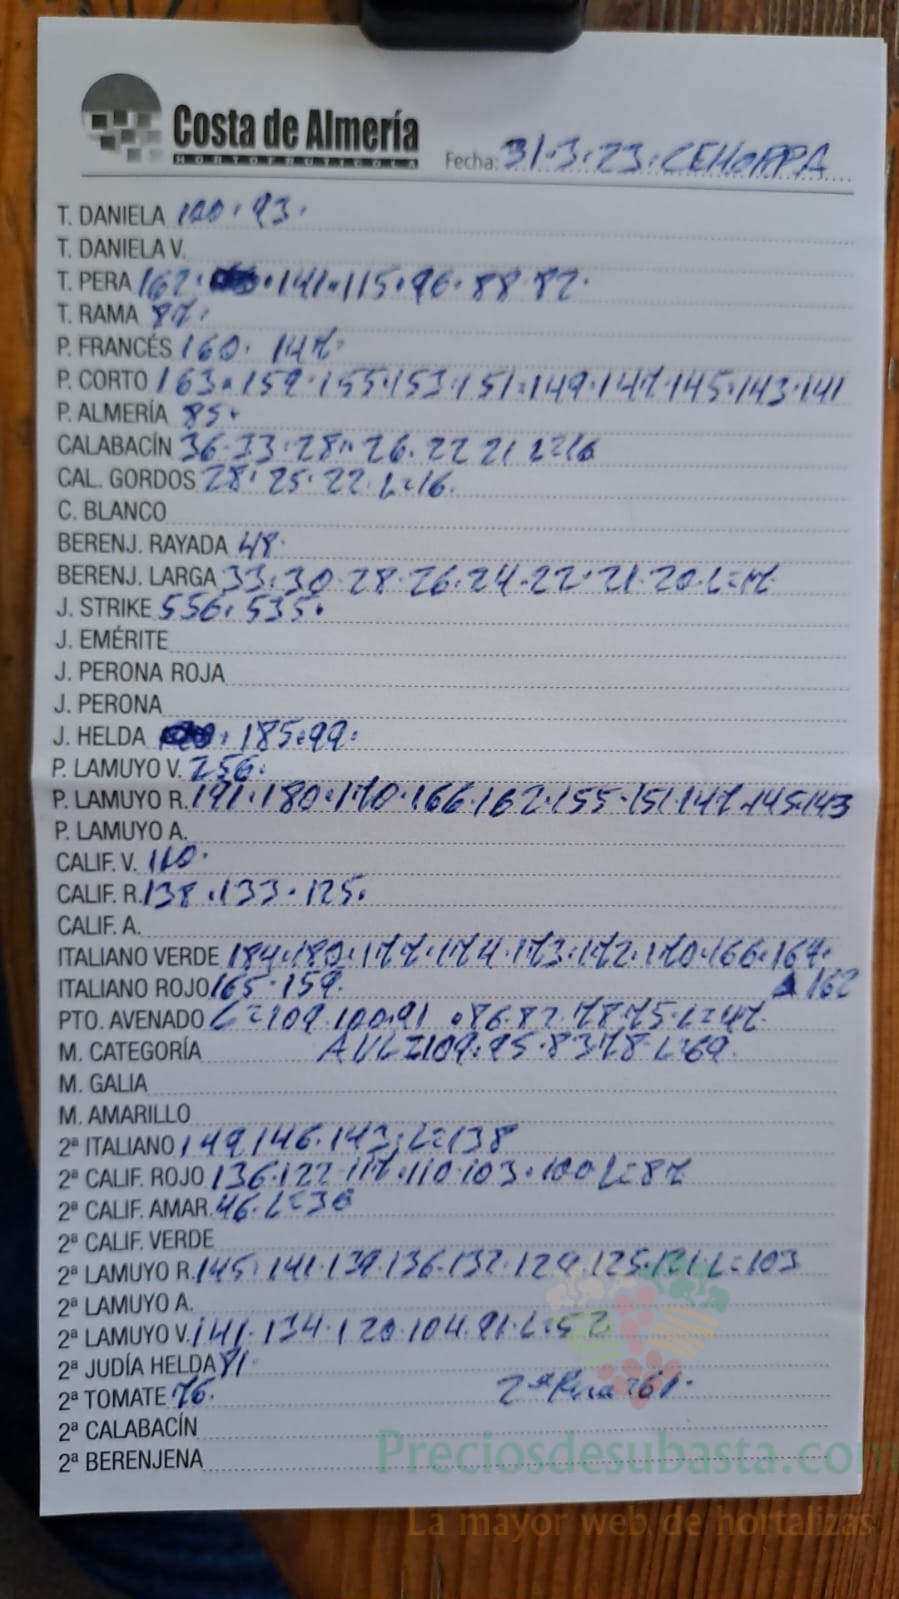 Costa de Almería
HORTOFRUTICOLA
Fecha: 31·3·23·CEHORPA
T. DANIELA 100· 93·
T. DANIELA V.
T. PERA 162· ·141·115·96·88·82·
T. RAMA 87·
P. FRANCÉS 160· 147·
P. CORTO 163·159·155·153·151·149·147·145·143·141
P. ALMERÍA 85·
CALABACÍN 36·33·28·26·22 21 L=16
CAL. GORDOS 28·25·22·L=16·
C. BLANCO
BERENJ. RAYADA 48·
BERENJ. LARGA 33·30·28·26·24·22·21·20·L=17
J. STRIKE 556·535·
J. EMÉRITE
J. PERONA ROJA
J. PERONA
J. HELDA ·185·99·
P. LAMUYO V. 256·
P. LAMUYO R. 191·180·170·166·162·155·151·147·145·143
P. LAMUYO A.
CALIF. V. 110·
CALIF. R. 138·133·125·
CALIF. A.
ITALIANO VERDE 184·180·177·174·173·172·170·166·164·
ITALIANO ROJO 165·159· 162
PTO. AVENADO C=109·100·91·86·82·78·75·L=47·
M. CATEGORÍA 109·95·83·78·L=69·
M. GALIA
M. AMARILLO
2ª ITALIANO 149·146·143·L=138
2ª CALIF. ROJO 136·122·117·110·103·100·L=87
2ª CALIF. AMAR. 46·L=30
2ª CALIF. VERDE
2ª LAMUYO R. 145·141·139·136·132·129·125·121·L=103
2ª LAMUYO A.
2ª LAMUYO V. 141·134·120·104·91·L=52
2ª JUDÍA HELDA 81·
2ª TOMATE 76· 2ª Pera
2ª CALABACÍN
2ª BERENJENA
Preciosdesubasta.com
La mayor web de hortalizas